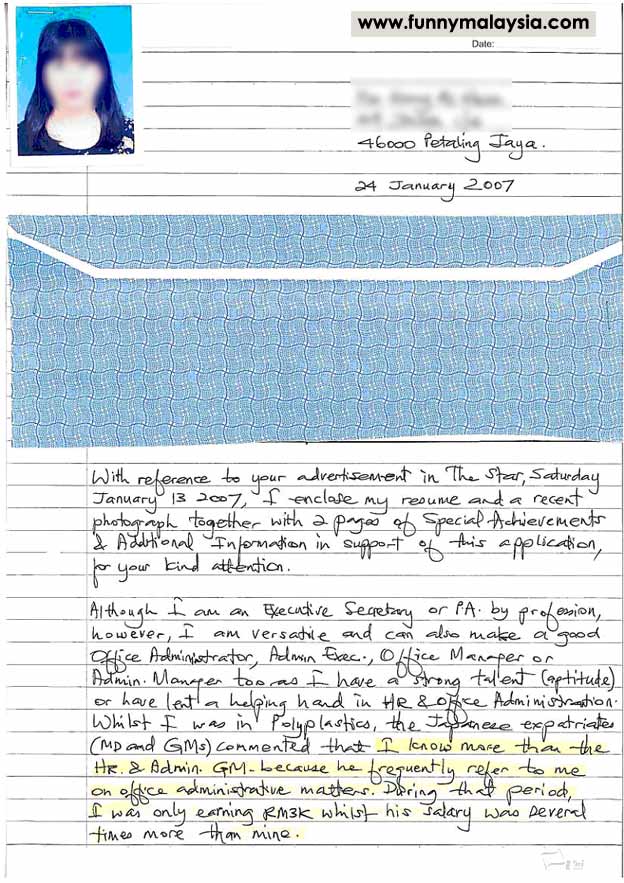 www.funnymalaysia.com
Date:
46000 Petaling Jaya.
24 January 2007
With reference to your advertisement in The Star, Saturday
January 13 2007, I enclose my resume and a recent
photograph together with 2 pages of Special Achievements
& Additional Information in support of this application,
for your kind attention.
Although I am an Executive Secretary or PA. by profession,
however, I am versatile and can also make a good
Office Administrator, Admin Exec., Office Manager or
Admin. Manager too as I have a strong talent (aptitude)
or have lent a helping hand in HR & Office Administration.
Whilst I was in Polyplastics, the Japanese expatriates
(MD and GMs) commented that I know more than the
HR. & Admin. GM. because he frequently refer to me
on office administrative matters. During that period,
I was only earning RM3K whilst his salary was several
times more than mine.